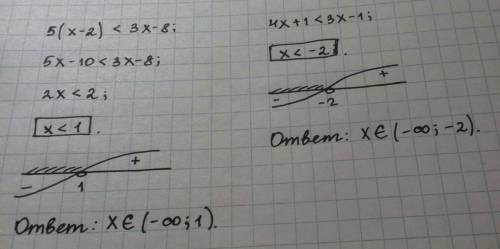 5(x-2) < 3x-8;
5x-10<3x-8;
2x<2;
x<1.
- 1 +
Ответ: x∈(-∞;1).
4x+1<3x-1;
x<-2.
- -2 +
Ответ: x∈(-∞;-2).